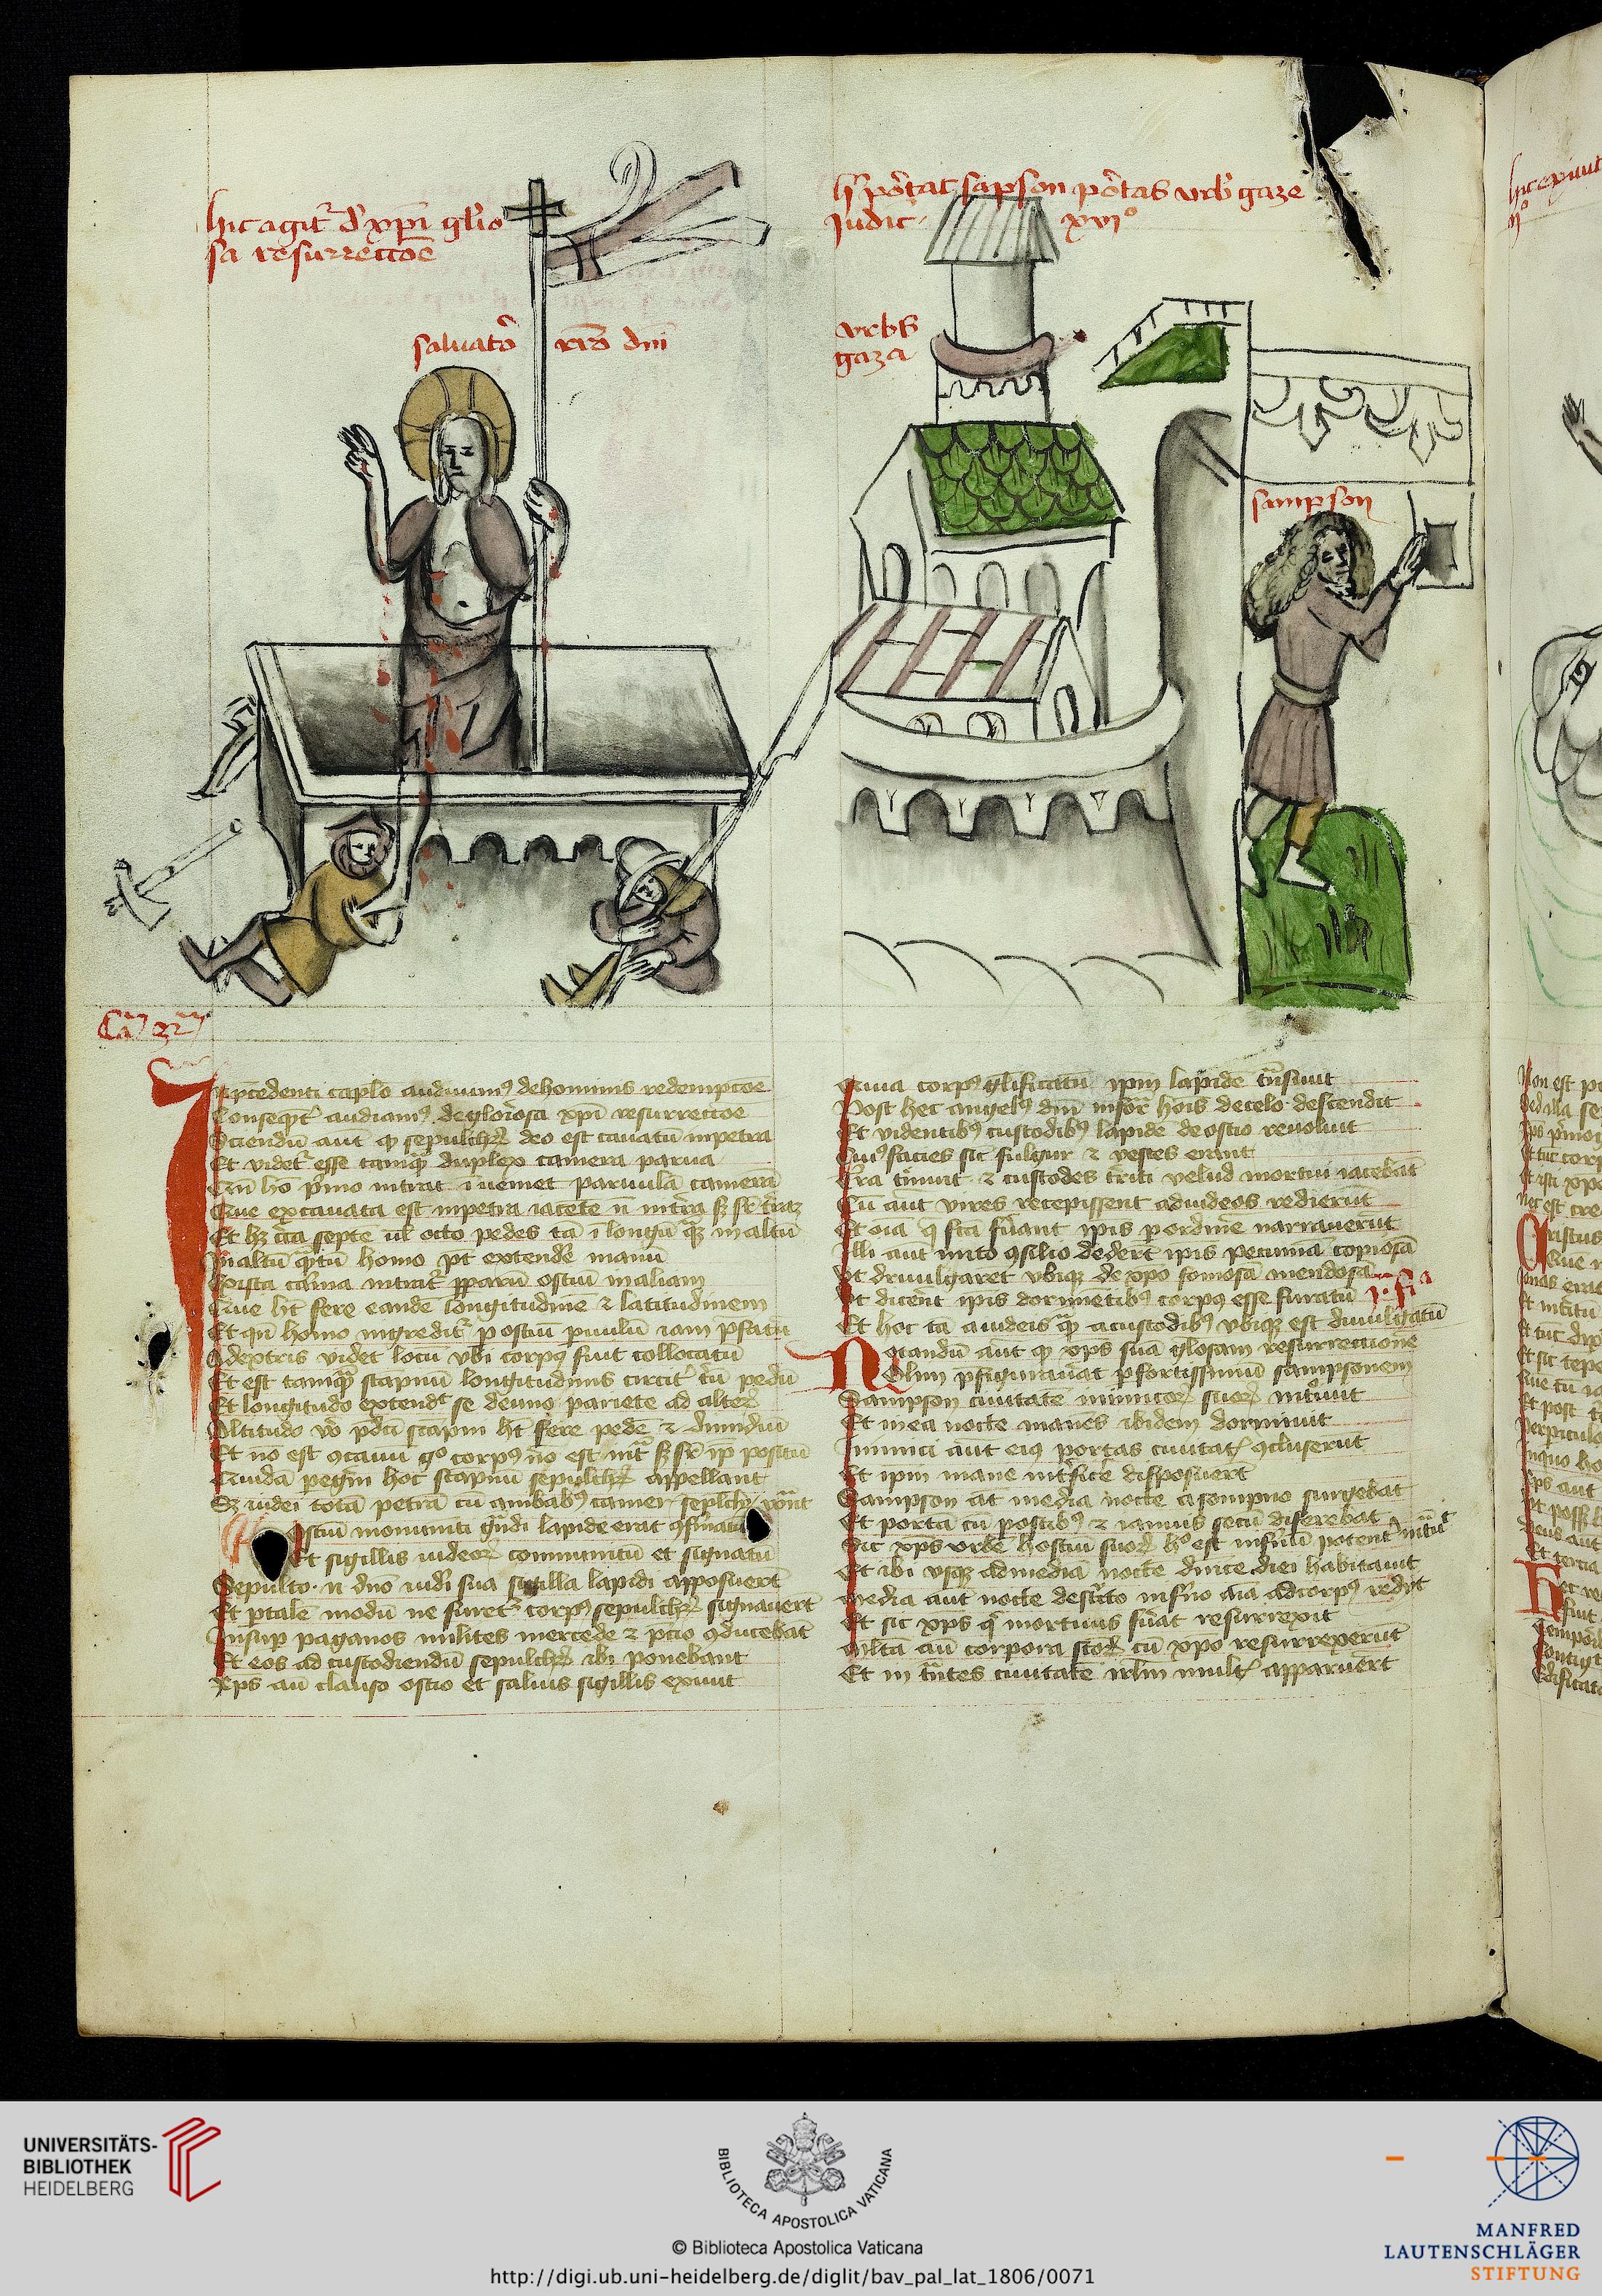 hic agit᷑ d᷑ xp̄i gl̓io
sa resurrectōe
saluato᷑ n̄r̄o dn̄i
h᷑ po᷑tat sapson po᷑tas vrb᷑ gaze
Judic· xvi°
vrbs
gaza
sampson
In p̄cedenti caplo audiuim᷒ de hominis redempcōe
Conseq̄nt᷑ audiam᷒ de gloriosa xp̄i resurrectōe
Sciendū aut̄ qꝫ sepulchꝝ deo est cauatū in petra
Et videt᷑ esse tamq̄ꝫ duplex camera parua
Cū hō p̓mo intrat inuenit paruulā camerā
Que excauata est in petra iacente nō intra sꝫ sr̄ terrā
Et hꝫ circa septē ul̄ octo pedes tā ī longū q̄ꝫ in altū
In altū q̄ntū homo pōt extendē manū
Ex ista cam̄a intrat᷑ ꝑ paruū ostiū in aliam
Que hꝫ fere eandē longitudinē ⁊ latitudinem
Et qn̄ homo ingredit᷑ ꝑ ostiū paruulū iam p̄fatū
A dextris videt locū vbi corp᷒ fuit collocatū
Et est tamq̄ꝫ scapnū longitudinis circit᷑ triū pedū
Et longitudo extendit se de uno pariete ad alteꝝ
Altitudo v̊ p̄dc̄i scāpni hꝫ fere pedē ⁊ dimidiū
Et nō est ꝯcauū g° corpꝰ nō est int̄ sꝫ sr̄ ip̄m positū
Quidā peg̓ni hoc scapnū sepulchꝝ appellant
Sꝫ iudei totā petrā cū ambabꝰ camer᷑ sepl̄chꝝ vocāt
Ostiū monumēti g̓ndi lapide erat ꝯfirmatū
Et sigillis iudeoꝝ communitū et signatū
Sepulto n̄ dn̄o iudei sua sigilla lapidi apposuer̄t
Et ꝑ talē modū ne furet᷑ corpꝰ sepulchꝝ signauer̄t
Insuꝑ paganos milites mercede ⁊ p̄cio ꝯducebāt
Et eos ad custodiendū sepulchꝝ ibi ponebant
Xp̄s aū clauso ostio et saluis sigillis exiuit
Quia corpꝰ gl̓ificatū ip̄m lapidē trn̄siuit
Post hec angelꝰ dn̄i in for̄ hoīs de celo descendit
Et videntibꝰ custodibꝰ lapidē de ostio reuoluit
Cuiꝰ facies sic fulgur ⁊ vestes erant
Terra timuit ⁊ custodes t̓riti velud mortui iacebāt
Cū aūt vires recepissent ad iudeos redierūt
Et oīa q̄ fc̄a fuerant ip̄is ꝑ ordinē narrauerūt
Illi aūt inito ꝯsilio deder̄t ip̄is pecuniā copiosā
Vt diuulgarēt vbiqꝫ de xp̄o fomosā mendosā
Vt dicer̄t ip̄is dormiētibꝰ corpꝰ esse furatū
Et hoc tā a iudeis q̄ꝫ a custodibꝰ vbiqꝫ est diuulgatū
Notandū aūt qꝫ xp̄s suā glōsam resurrectionē
Olim p̄figurauerat ꝑ fortissimū sampsonem
Sampson ciuitatē inimicoꝝ suoꝝ intrauit
Et in ea nocte manēs ibidem dormiuit
Inimici aūt eiꝰ portas ciuitat᷑ ꝯcluserūt
Et ip̄m mane int̄ficē disposuer̄t
Sampson aūt media nocte a sompno surgebat
Et portā cū postibꝰ ⁊ ianuis secū differebat
Sic xp̄s vrbē hostiū suoꝝ h° est infernū potent᷑ intᵃuit
Et ibi vsqꝫ ad mediā noctē dn̄ice diei habitauit
Media aūt nocte destructo inferno aīa ad corpꝰ redijt
Et sic xp̄s qͥ mortuus fuerat resurrexit
Multa aū corpora sc̄oꝝ cū xp̄o resurrexerūt
Et intrātes ciuitatē irl̄m mult᷑ apparuer̄t
UNIVERSITÄTS-
BIBLIOTHEK
HEIDELBERG
BIBLIOTECA APOSTOLICA VATICANA
© Biblioteca Apostolica Vaticana
http://digi.ub.uni-heidelberg.de/diglit/bav_pal_lat_1806/0071
MANFRED
LAUTENSCHLÄGER
STIFTUNG